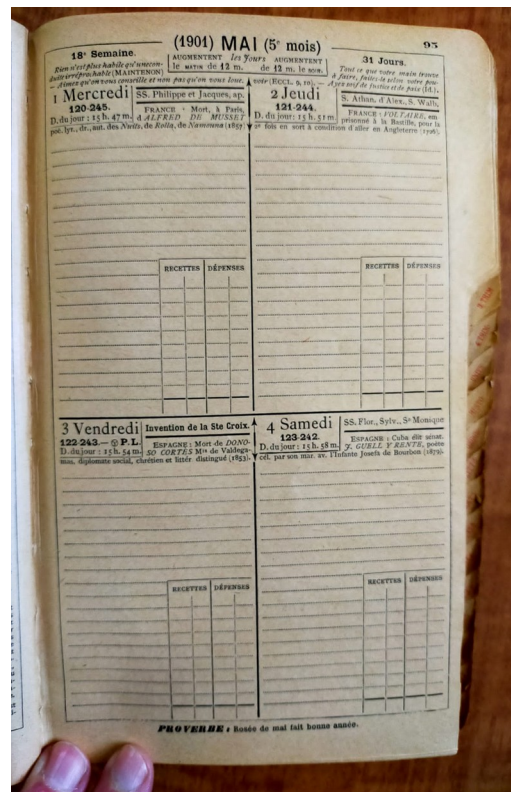 (1901) MAI (5e mois)
95
18e Semaine.
Rien n'est plus habile qu'une con-
duite irréprochable (MAINTENON)
— Aimez qu'on vous conseille et non pas qu'on vous loue.
AUGMENTENT les jours AUGMENTENT
le MATIN de 12 m. de 12 m. le SOIR.
31 Jours.
Tout ce que votre main trouve
à faire, faites-le selon votre pou-
voir (ECCL. 9, 10). — Ayez soif de justice et de paix (Id.).
1 Mercredi
120-245.
D. du jour : 15 h. 47 m.
SS. Philippe et Jacques, ap.
FRANCE : Mort, à Paris,
d'ALFRED DE MUSSET
poè. lyr., dr., aut. des Nuits, de Rolla, de Namouna (1857)
2 Jeudi
121-244.
D. du jour : 15 h. 51 m.
S. Athan. d'Alex., S. Walb.
FRANCE : VOLTAIRE, em-
prisonné à la Bastille, pour la
2e fois en sort à condition d'aller en Angleterre (1726).
RECETTES DÉPENSES
RECETTES DÉPENSES
3 Vendredi
122-243.— P. L.
D. du jour : 15 h. 54 m.
Invention de la Ste Croix.
ESPAGNE : Mort de DONO-
SO CORTÈS Mis de Valdega-
mas, diplomate social, chrétien et littér. distingué (1853).
4 Samedi
123-242.
D. du jour : 15 h. 58 m.
SS. Flor., Sylv., Se Monique
ESPAGNE : Cuba élit sénat.
J. GUELL Y RENTE, poète
cél. par son mar. av. l'Infante Josefa de Bourbon (1879).
RECETTES DÉPENSES
RECETTES DÉPENSES
PROVERBE : Rosée de mai fait bonne année.